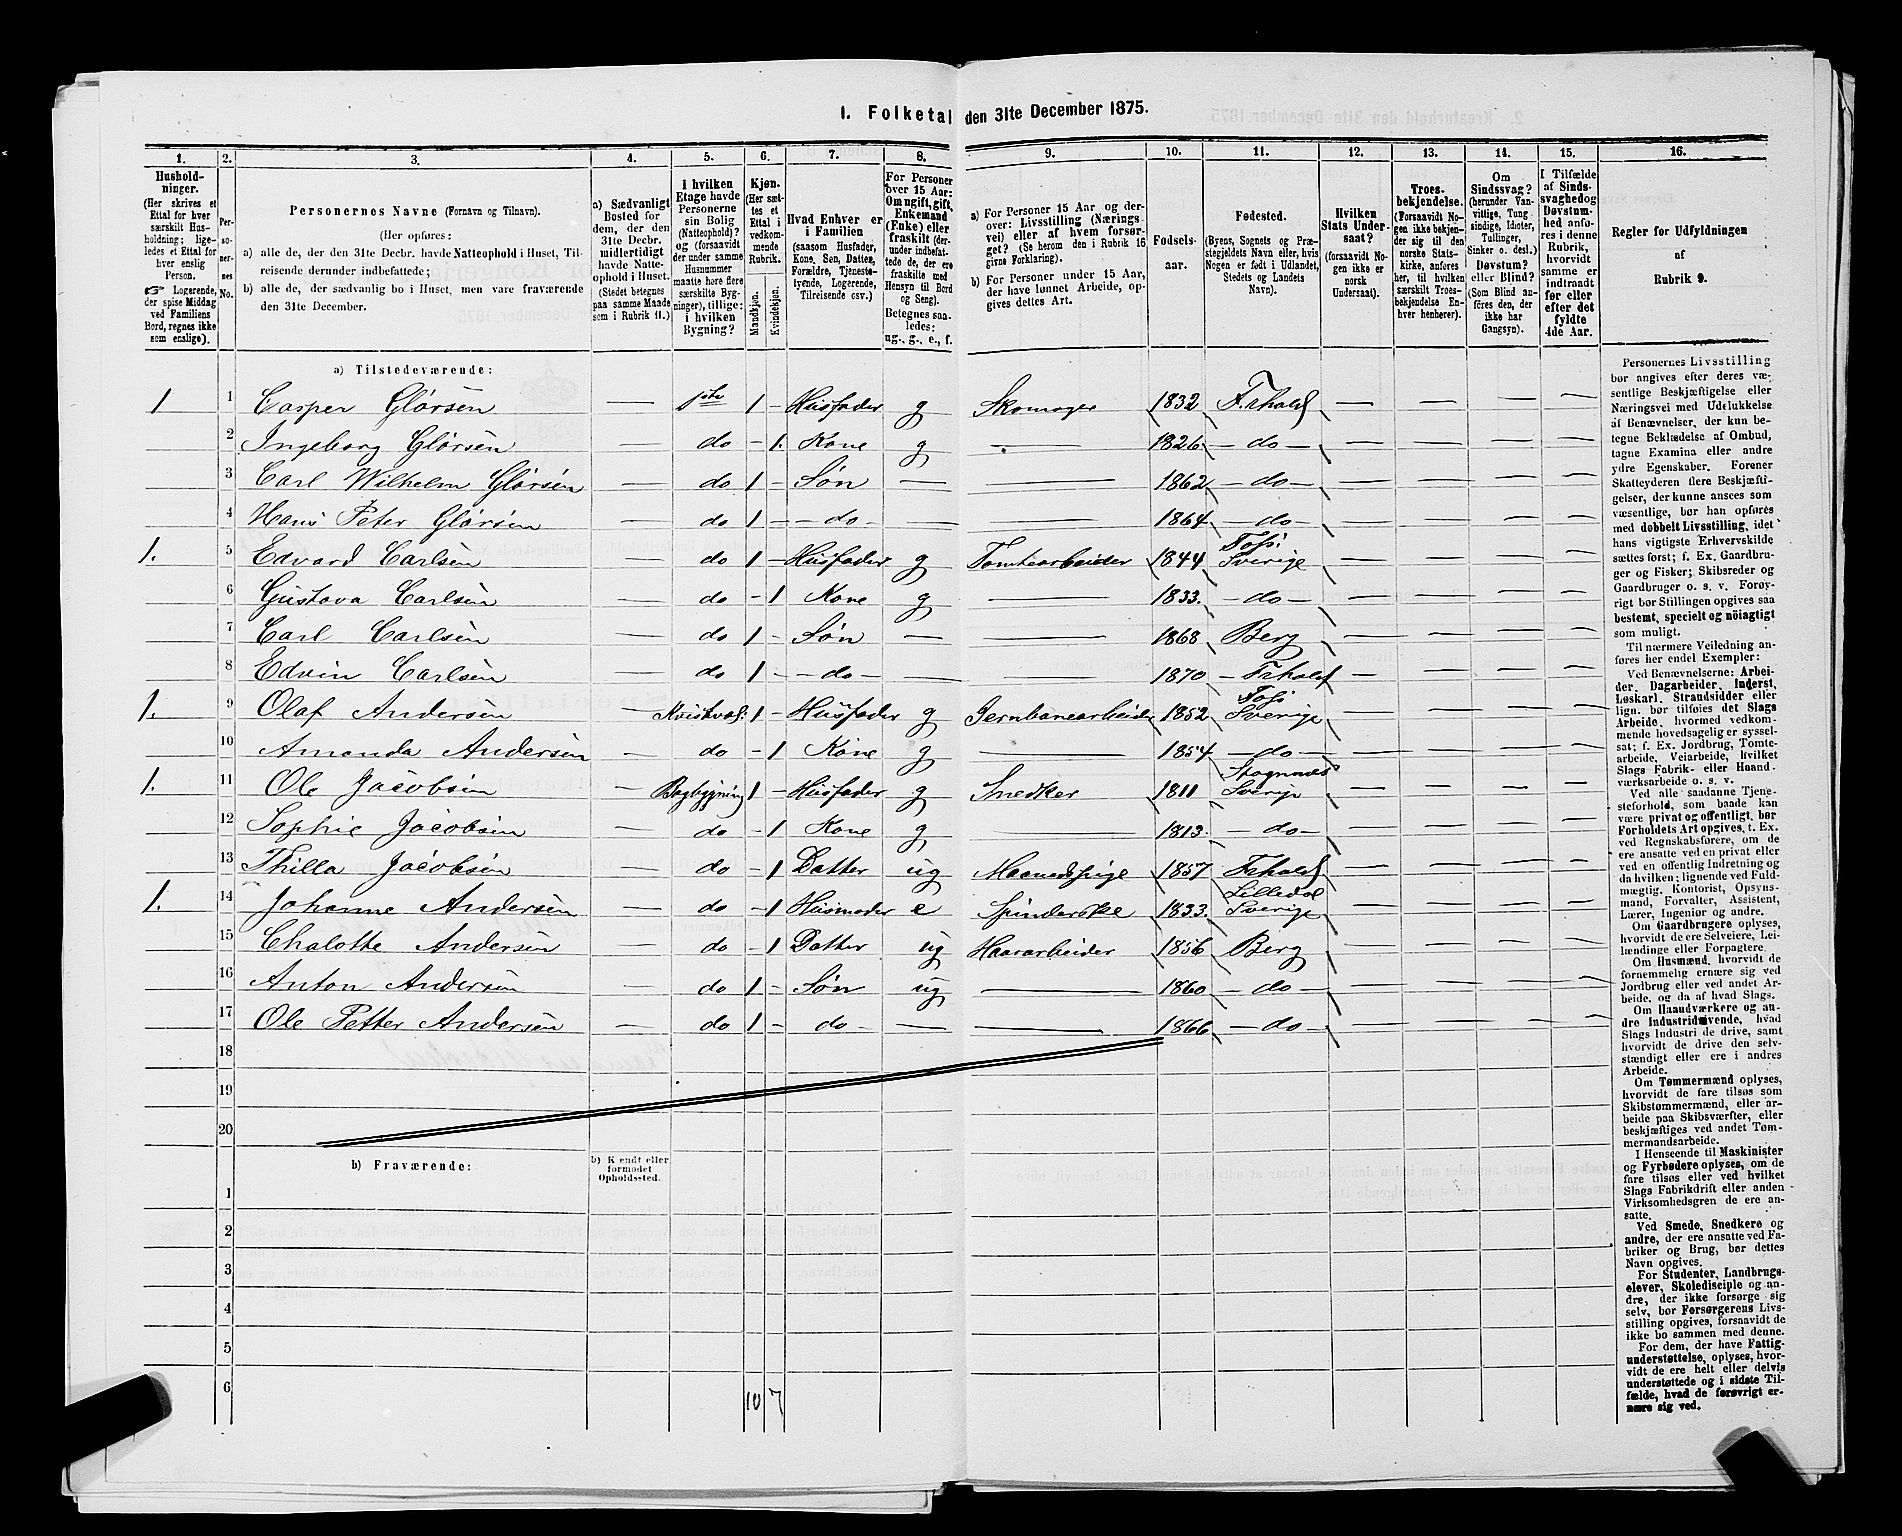 1. Folketal den 31te December 1875.
1. 2. 3. 4. 5. 6. 7. 8. 9. 10. 11. 12. 13. 14. 15. 16.
Hushold-
ninger.
(Her skrives et
Ettal for hver
særskilt Hus-
holdning; lige-
ledes et Ettal for
hver enslig
Person.
☞ Logerende,
der spise Middag
ved Familiens
Bord, regnes ikke
som enslige).
Per-
so-
ner-
nes
No.
Personernes Navne (Fornavn og Tilnavn).
(Her opføres:
a) alle de, der den 31te Decbr. havde Natteophold i Huset, Til-
reisende derunder indbefattede;
b) alle de, der sædvanlig bo i Huset, men vare fraværende
den 31te December.
a) Sædvanligt
Bosted for
dem, der den
31te Decbr.
midlertidigt
havde Natte-
ophold i Huset.
(Stedet betegnes
paa samme Maade
som i Rubrik 11.)
I hvilken
Etage havde
Personerne
sin Bolig
(Natteophold)?
og (forsaavidt
der under samme
Husnummer
maatte høre flere
særskilte Byg-
ninger), tillige:
i hvilken
Bygning?
Kjøn.
(Her sæt-
tes et
Ettal i
vedkom-
mende
Rubrik.
Mandkjøn.
Kvindekjøn.
Hvad Enhver er
i Familien
(saasom Husfader,
Kone, Søn, Datter,
Forældre, Tjeneste-
tyende, Logerende,
Tilreisende osv.)
For Personer
over 15 Aar:
Om ugift, gift,
Enkemand
(Enke) eller
fraskilt (der-
under indbefat-
tede de, der ere
fraskilte med
Hensyn til Bord
og Seng).
Betegnes saa-
ledes:
ug., g., e., f.
a) For Personer 15 Aar og der-
over: Livsstilling (Nærings-
vei) eller af hvem forsør-
get? (Se herom den i Rubrik 16
givne Forklaring).
b) For Personer under 15 Aar,
der have lønnet Arbeide, op-
gives dettes Art.
Fødsels-
aar.
Fødested.
(Byens, Sognets og Præ-
stegjeldets Navn eller, hvis
Nogen er født i Udlandet,
Stedets og Landets
Navn).
Hvilken
Stats Under-
saat?
(forsaavidt No-
gen ikke er
norsk
Undersaat).
Troes-
bekjendelse.
(Forsaavidt No-
gen ikke bekjen-
der sig til den
norske Stats-
kirke, anføres
her, til hvilken
særskilt Troes-
bekjendelse En-
hver henhører).
Om
Sindssvag?
(herunder Van-
vittige, Tung-
sindige, Idioter,
Tullinger,
Sinker o. desl.)
Døvstum?
eller Blind?
(Som Blind an-
føres den, der
ikke har
Gangsyn).
I Tilfælde
af Sinds-
svaghed og
Døvstum-
hed anføres
i denne
Rubrik,
hvorvidt
samme er
indtraadt
før eller
efter det
fyldte
4de Aar.
Regler for Udfyldningen
af
Rubrik 9.
a) Tilstedeværende:
1 1 Casper Glørsen — 1ste 1 - Husfader g Skomager 1832 Frhald — — — —
2 Ingeborg Glørsen — do - 1 Kone g — 1826 — do — — — — —
3 Carl Wilhelm Glørsen — do 1 - Søn — — 1862 — do — — — — —
4 Hans Peter Glørsen — do 1 - — do — — — 1864 — do — — — — —
1. 5 Edvard Carlsen — do 1 - Husfader g Tomtearbeider 1844 Sverige — — — —
6 Gustava Carlsen — do - 1 Kone g — 1833 — do — — — — —
7 Carl Carlsen — do 1 - Søn — — 1868 Berg — — — —
8 Edvin Carlsen — do 1 - — do — — — 1870 — Frhald — — — —
1. 9 Olaf Andersen — Kvistværl: 1 - Husfader g Jernbanearbeider 1852 Sverige — — — —
10 Amanda Andersen — do - 1 Kone g — 1854 — do — — — — —
1. 11 Ole Jacobsen — Bagbygning 1 - Husfader g Snedker 1811 Sverige — — — —
12 Sophie Jacobsen — do - 1 Kone g — 1813 — do — — — — —
13 Thilla Jacobsen — do - 1 Datter ug Maanedspige 1857 Frhald — — — —
1. 14 Johanne Andersen — do - 1 Husmoder e Spinderske 1833 Lilledal Sverige — — — —
15 Chalotte Andersen — do - 1 Datter ug Haararbeider 1856 Berg — — — —
16 Anton Andersen — do 1 - Søn ug — 1860 — do — — — — —
17 Ole Petter Andersen — do 1 - do — — 1866 — do — — — — —
18
19
20
b) Fraværende:
b) Kjendt eller
formodet
Opholdssted.
1
2
3
4
5
6
10 7
Personernes Livsstilling
bør angives efter deres væ-
sentlige Beskjæftigelse eller
Næringsvei med Udelukkelse
af Benævnelser, der kun be-
tegne Beklædelse af Ombud,
tagne Examina eller andre
ydre Egenskaber. Forener
Skatteyderen flere Beskjæfti-
gelser, der kunne ansees som
væsentlige, bør han opføres
med dobbelt Livsstilling, idet
hans vigtigste Erhvervskilde
sættes først; f. Ex. Gaardbru-
ger og Fisker; Skibsreder og
Gaardbruger o. s. v. Forøv-
rigt bør Stillingen opgives saa
bestemt, specielt og nöiagtigt
som muligt.
Til nærmere Veiledning an-
føres her endel Exempler:
Ved Benævnelserne: Arbei-
der, Dagarbeider, Inderst,
Løskarl, Strandsidder eller
lign. bør tilføies det Slags
Arbeide, hvormed vedkom-
mende hovedsagelig er syssel-
sat; f. Ex. Jordbrug, Tomte-
arbeide, Veiarbeide, hvilket
Slags Fabrik- eller Haand-
værksarbeide o. s. v.
Ved alle saadanne Tjene-
steforhold, som baade kan
være privat og offentligt, bør
Forholdets Art opgives, t. Ex.
ved Regnskabsførere, om de
ere ansatte ved en privat eller
ved en offentlig Indretning og
da hvilken; lignende ved Fuld-
mægtig, Kontorist, Opsyns-
mand, Forvalter, Assistent,
Lærer, Ingeniør og andre.
Om Gaardbrugere oplyses,
hvorvidt de ere Selveiere, Lei-
lændinge eller Forpagtere.
Om Husmænd, hvorvidt de
fornemmelig ernære sig ved
Jordbrug eller ved andet Ar-
beide, og da af hvad Slags.
Om Haandværkere og an-
dre Industridrivende, hvad
Slags Industri de drive, samt
hvorvidt de drive den selv-
stændigt eller ere i andres
Arbeide.
Om Tømmermænd oplyses,
hvorvidt de fare tilsøs som
Skibstømmermænd, eller ar-
beide paa Skibsværfter, eller
beskjæftiges ved andet Tøm-
mermandsarbeide.
I Henseende til Maskinister
og Fyrbødere oplyses, om de
fare tilsøs eller ved hvilket
Slags Fabrikdrift eller anden
Virksomhedsgren de ere an-
satte.
Ved Smede, Snedkere og
andre, der ere ansatte ved Fa-
briker og Brug, bør dettes
Navn opgives.
For Studenter, Landbrugs-
elever, Skoledisciple og an-
dre, der ikke forsørge sig
selv, bør Forsørgerens Livs-
stilling opgives, forsaavidt de
ikke bo sammen med denne.
For dem, der have Fattig-
understøttelse, oplyses, hvor-
vidt de ere helt eller delvis
understøttede og i sidste Til-
fælde, hvad de forøvrigt er-
nære sig ved.